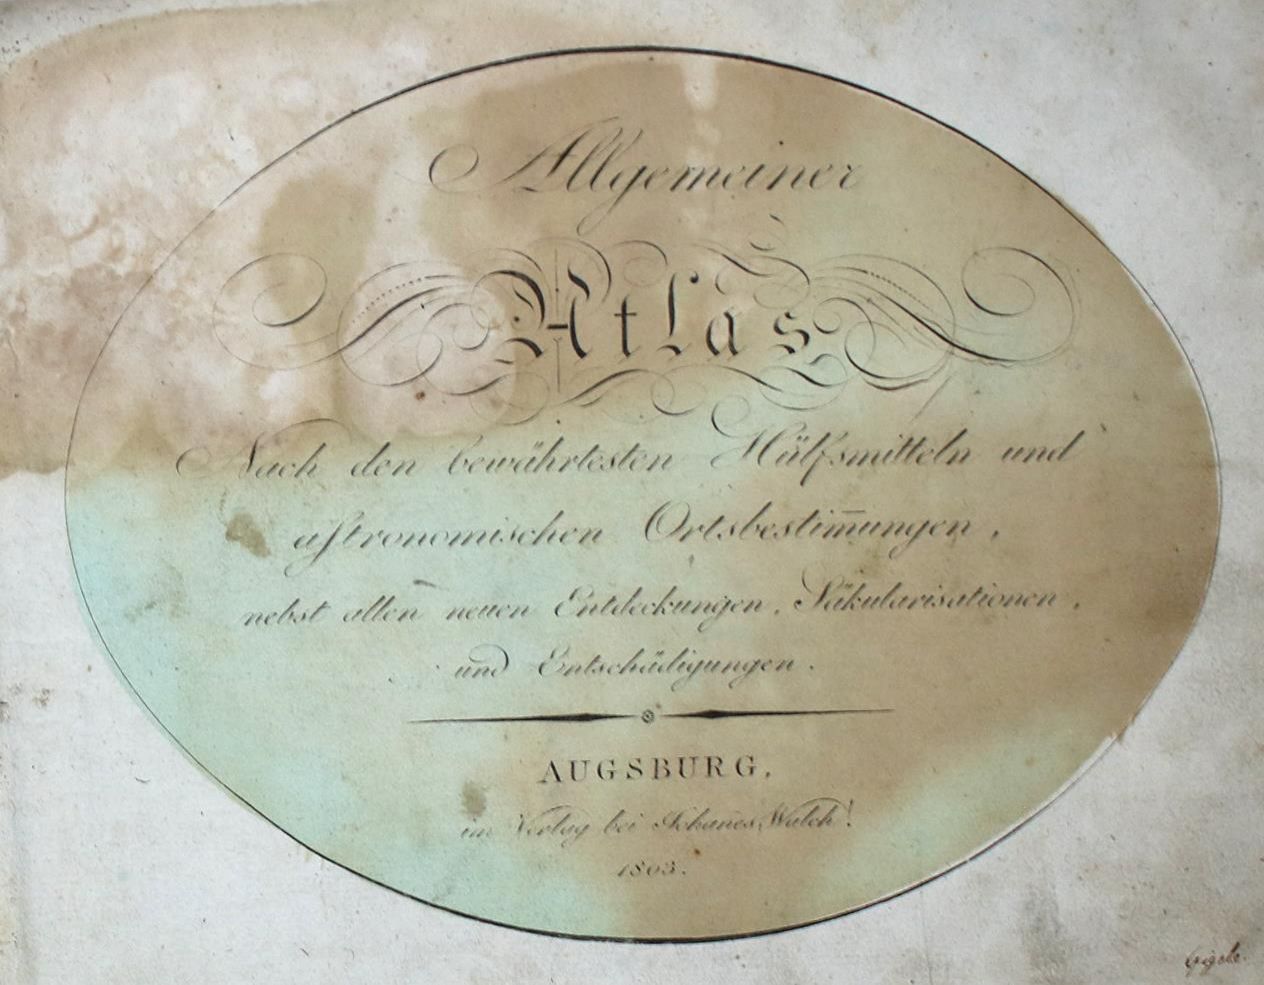 Allgemeiner
Atlas
Nach den bewährtesten Hülfsmitteln und
aſtronomischen Ortsbestim̅ungen,
nebst allen neuen Entdeckungen, Säkularisationen,
und Entschädigungen.
AUGSBURG,
im Verlag bei Iohanes Walch.
1803.